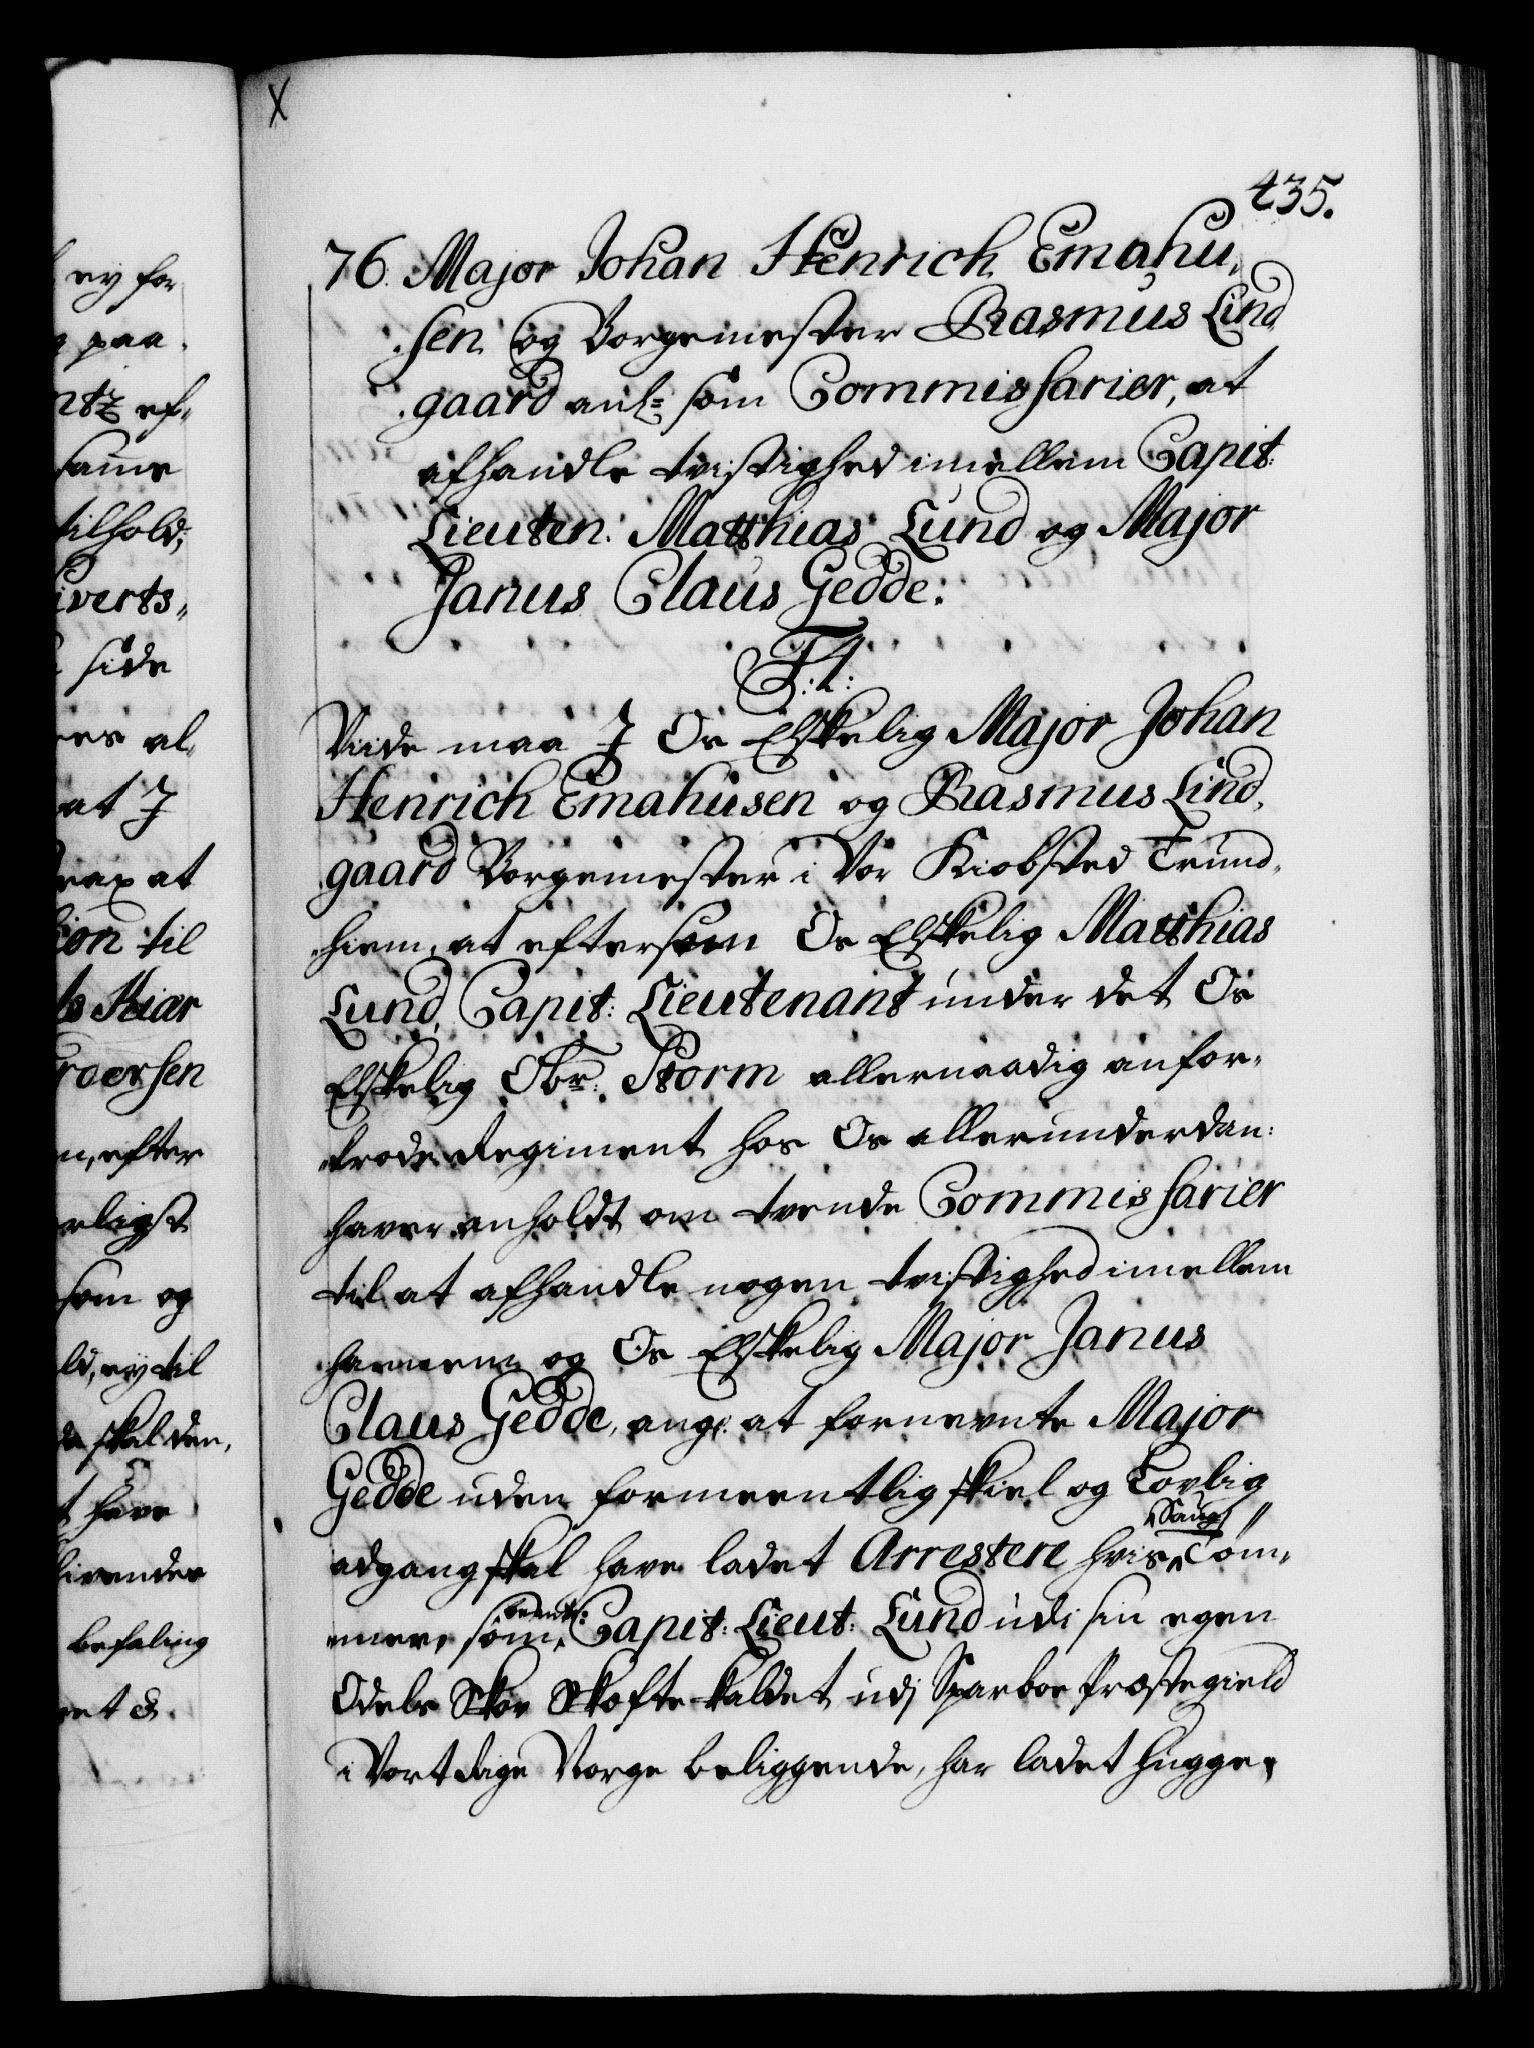 X
435.
76. Major Johan Henrich Emahu,
sen og Borgemester Rasmus Lind
gaard anl= som Commissarier, at
afhandle tvistighed imellem Capit:
Lieuten: Matthias Lund og Major
Janus Claus Gedde:
F: 4:
Viide maa I Os Elskelig Major Johan
Henrich Emahusen og Rasmus Lind,
gaard Borgemester i Vor Kiobsted Trund,
hiem, at eftersom Os Elskelig Matthias
Lund, Capit: Lieutenant under det Os
Elskelig Obr: Storm allernaadig anfor,
trode Regiment hos Os allerunderdan:
haver anholdt om tvende Commissarier
til at afhandle nogen tvistighed imellem
hannem og Os Elskelig Major Janus
Claus Gedde, ang: at fornevnte Major
Gedde uden formeentlig skiel og Lovlig
adgang skal have ladet Arrestere hvis Saug Töm,
mer, som bemte: Capit: Lieut: Lund udi sin egen
Odels Skov Skofte kaldet udj Sparboe Præstegield
i Vort Rige Norge beliggende, har ladet hugge,
ey for
paa
ef,
samme
tilhold;
iverts,,
side
al,
at I
at
ion til
Kiær
rdersen
n, efter
erligst
som og
ey til
skal den,
have
befaling